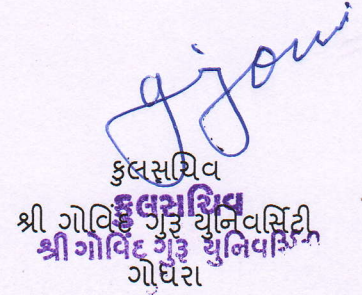 કુલસચિવ
કુલસચિવ
શ્રી ગોવિંદ ગુરૂ યુનિવર્સિટી
શ્રી ગોવિંદ ગુરૂ યુનિવર્સિટી
ગોધરા